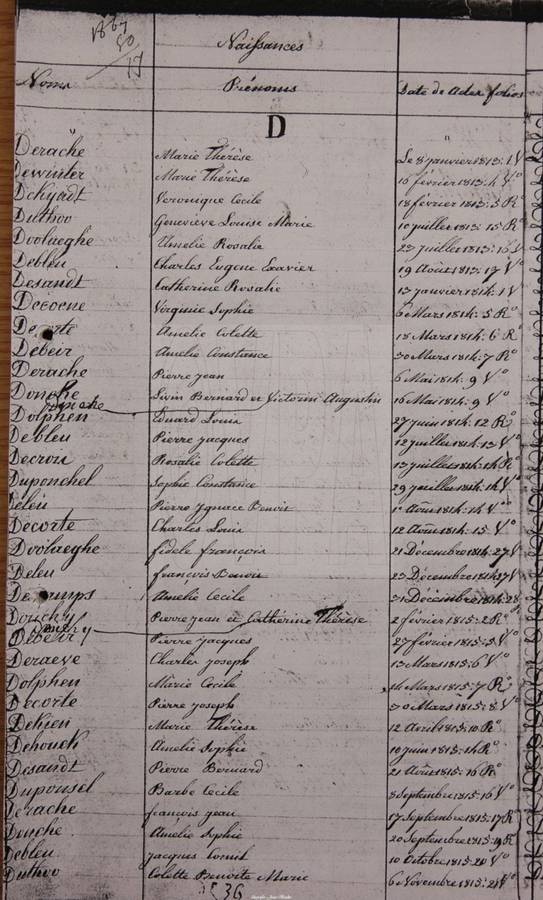 1887
50
Naissances
Noms Prénoms Date de Actes folios
D
Derache Marie Thérèse Le 8 janvier 1813. 1 Vº
Dewinter Marie Thérèse 16 février 1813. 4 Vº
Dekyndt Veronique Cecile 18 février 1813. 5 Rº
Duthoo Geneviève Louise Marie 10 juillet 1813. 15 Rº
Doolaeghe Amelie Rosalie 23 juillet 1813. 16 Vº
Debleu Charles Eugene Exavier 19 Août 1813. 17 Vº
Desandt Catherine Rosalie 13 janvier 1814. 1 Vº
Decocne Virginie Sophie 6 Mars 1814. 5 Rº
Decorte Amelie Colette 18 Mars 1814. 6 Rº
Debeir Amelie Constance 30 Mars 1814. 7 Rº
Derache Pierre jean 6 Mai 1814. 9 Vº
Donche Livin Bernard et Victorin Augustin 16 Mai 1814. 9 Vº
Donche
Dolphen Eduard Louis 27 juin 1814. 12 Rº
Debleu Pierre jacques 12 juillet 1814. 13 Vº
Decroix Rosalie Colette 13 juillet 1814. 14 Rº
Duponchel Sophie Constance 29 juillet 1814. 14 Vº
eleu Pierre Ignace Benoit 1º Août 1814. 14 Vº
Decorte Charles Louis 12 Août 1814. 15 Vº
Doolaeghe fidele françois 21 Décembre 1814. 27 Vº
Deleu françois Benoit 23 Décembre 1814. 27 Vº
Amelie Cecile 31 Décembre 1814. 28
Douchy Pierre jean et Catherine Thérèse 2 février 1815. 2 Rº
Pierre jacques 27 février 1815. 5 Vº
Deraeve Charles joseph 13 Mars 1815. 6 Vº
Dolphen Marie Cecile 14 Mars 1815. 7 Rº
Decorte Pierre joseph 30 Mars 1815. 8 Vº
Dekien Marie Thérèse 12 Avril 1815. 10 Rº
Dehouck Amelie Sophie 10 juin 1815. 14 Rº
Desandt Pierre Bernard 21 Août 1815. 16 Rº
Duponsel Barbe Cecile 5 Septembre 1815. 16 Vº
Derache françois jean 17 Septembre 1815. 17 Rº
Donche Amelie Sophie 20 Septembre 1815. 19 Rº
Debleu jacques Cornil 10 Octobre 1815. 20 Vº
Duthoo Colette Benoite Marie 6 Novembre 1815. 21 Vº
36